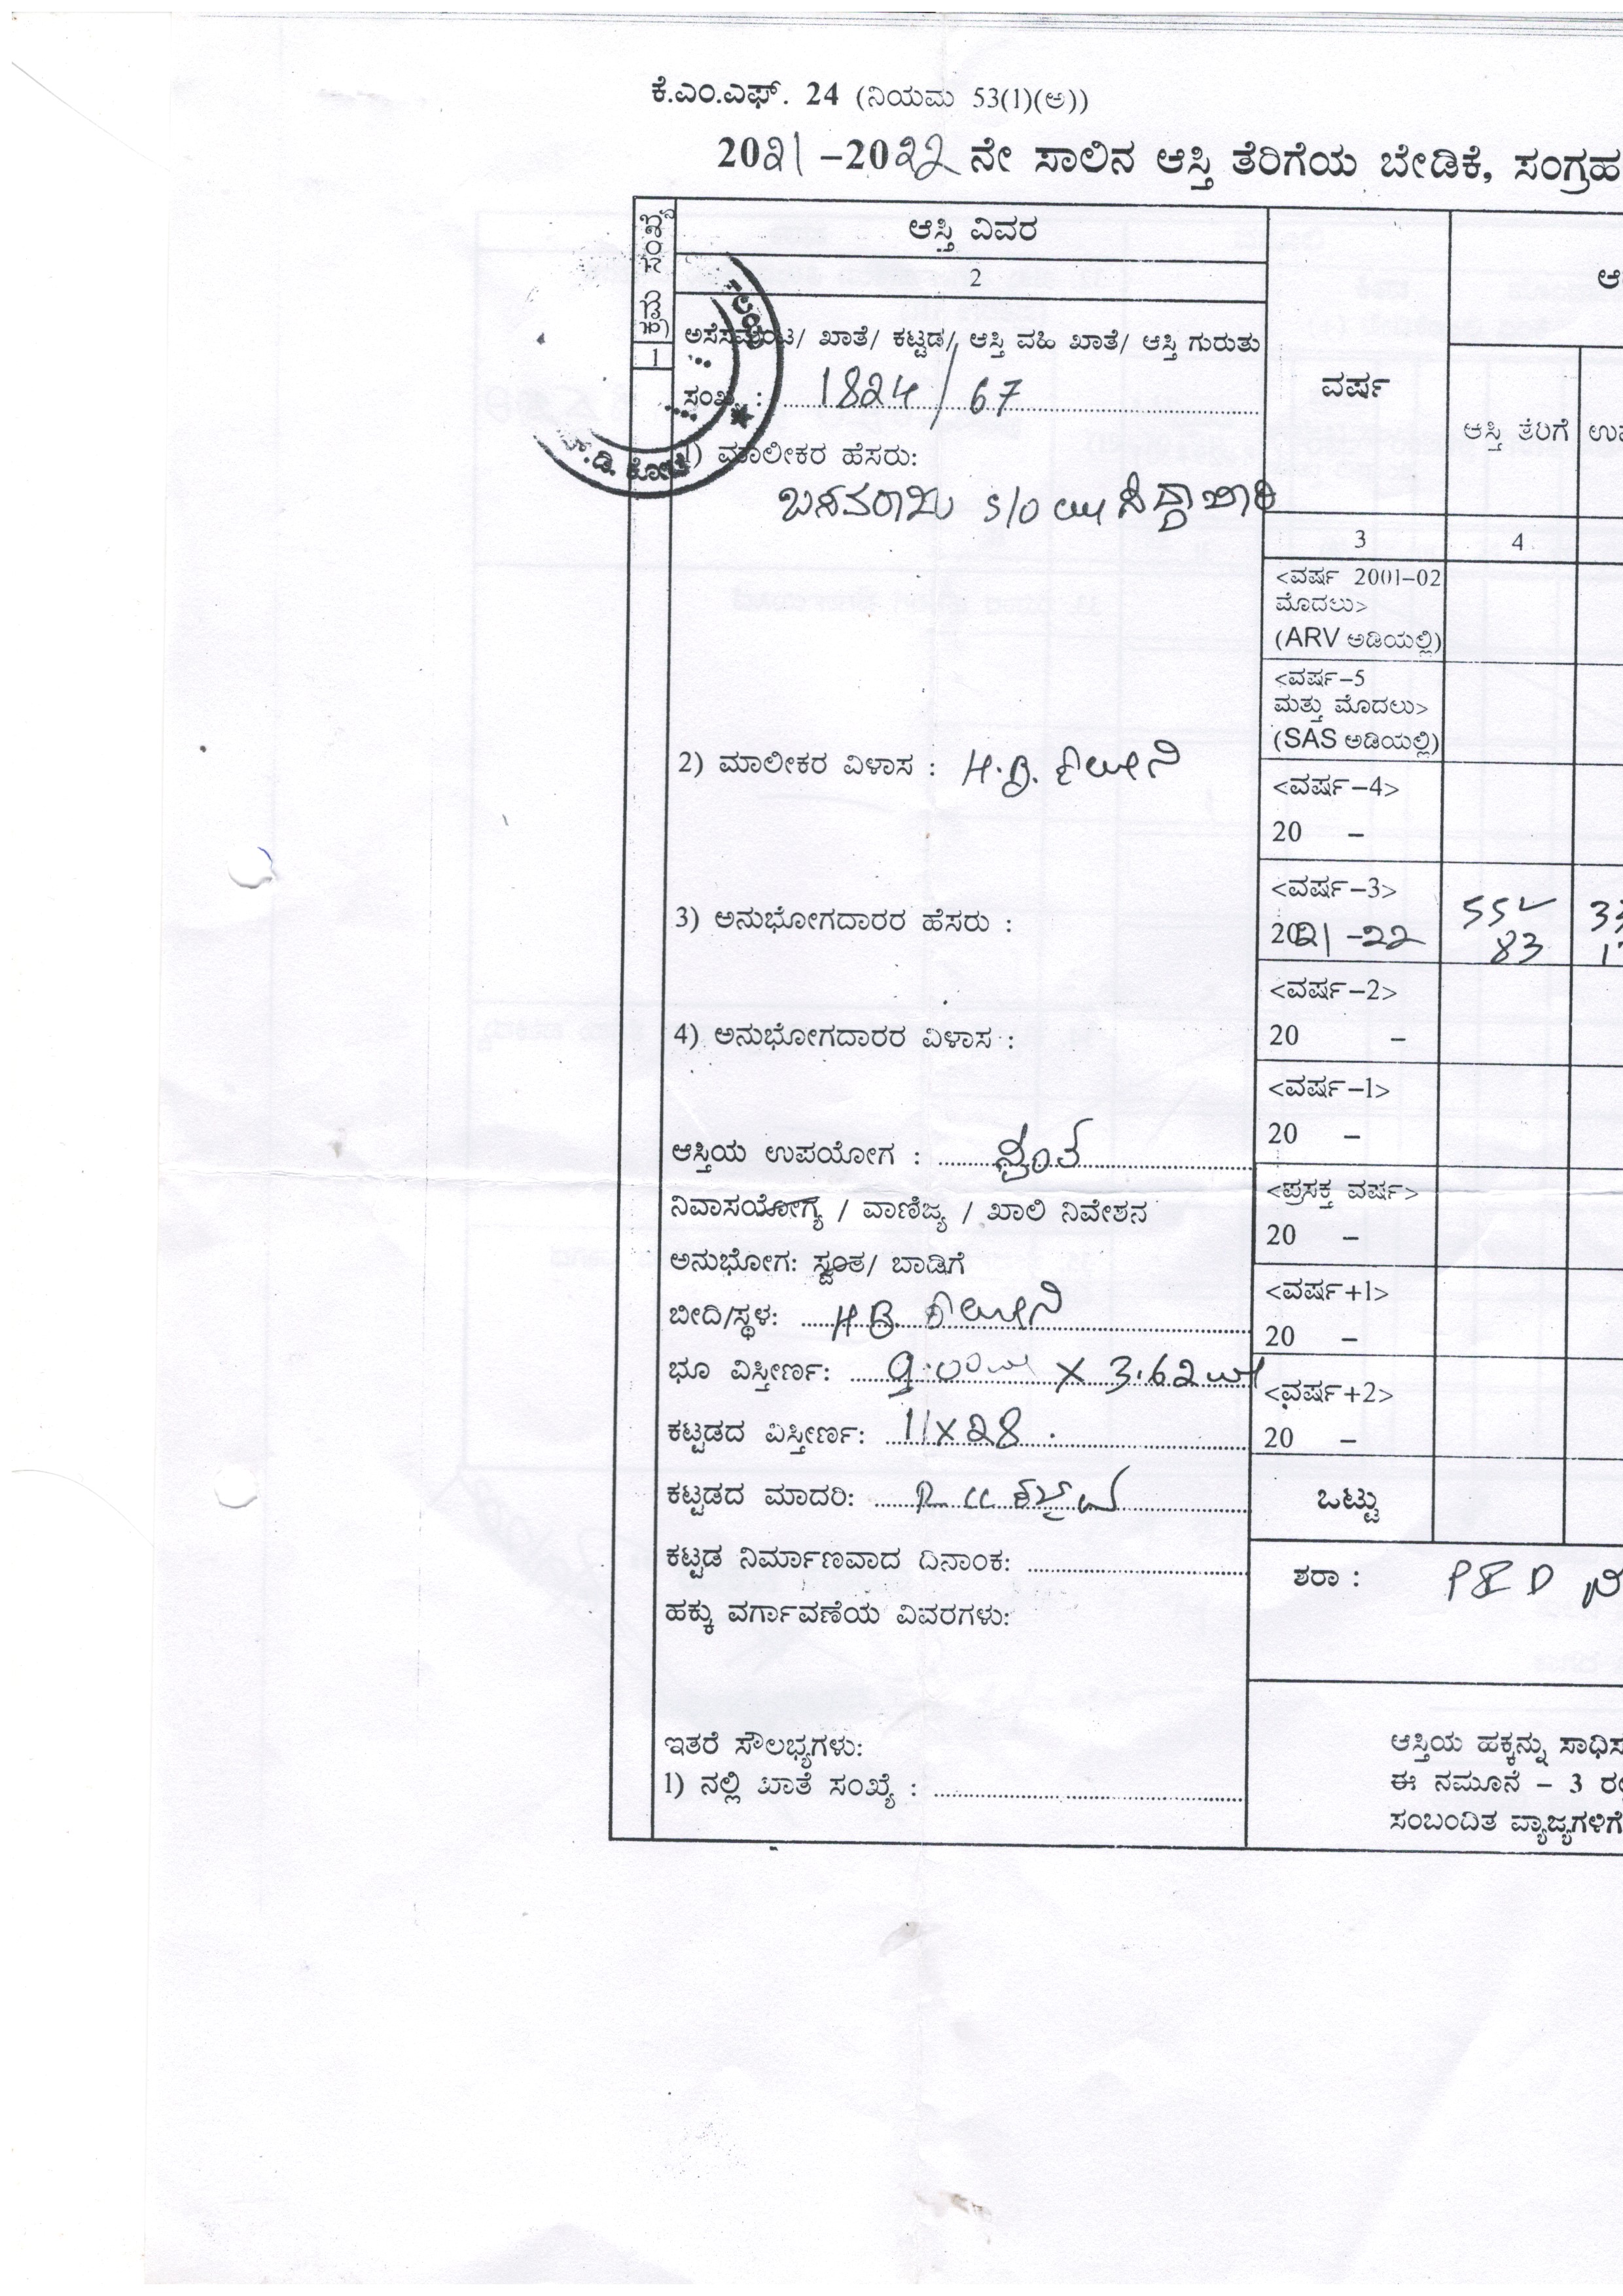 ಕೆ.ಎಂ.ಎಫ್. 24 (ನಿಯಮ 53(1)(ಅ))
2021-2022 ನೇ ಸಾಲಿನ ಆಸ್ತಿ ತೆರಿಗೆಯ ಬೇಡಿಕೆ, ಸಂಗ್ರಹ
ಕ್ರಮ ಸಂಖ್ಯೆ
1
ಆಸ್ತಿ ವಿವರ
2
ಅಸೆಸಮೆಂಟ/ ಖಾತೆ/ ಕಟ್ಟಡ/ ಆಸ್ತಿ ವಹಿ ಖಾತೆ/ ಆಸ್ತಿ ಗುರುತು
ಸಂಖ್ಯೆ : 1824/67
1) ಮಾಲೀಕರ ಹೆಸರು:
ಬಸವರಾಜು S/O
.ಡಿ. ಕೋಟೆ
2) ಮಾಲೀಕರ ವಿಳಾಸ : H.B.
3) ಅನುಭೋಗದಾರರ ಹೆಸರು :
4) ಅನುಭೋಗದಾರರ ವಿಳಾಸ :
ಆಸ್ತಿಯ ಉಪಯೋಗ : ಸ್ವಂತ
ನಿವಾಸಯೋಗ್ಯ / ವಾಣಿಜ್ಯ / ಖಾಲಿ ನಿವೇಶನ
ಅನುಭೋಗ: ಸ್ವಂತ/ ಬಾಡಿಗೆ
ಬೀದಿ/ಸ್ಥಳ: H.B.
ಭೂ ವಿಸ್ತೀರ್ಣ: 9.00ಮೀ X 3.62ಮೀ
ಕಟ್ಟಡದ ವಿಸ್ತೀರ್ಣ: 11X28
ಕಟ್ಟಡದ ಮಾದರಿ:
ಕಟ್ಟಡ ನಿರ್ಮಾಣವಾದ ದಿನಾಂಕ:
ಹಕ್ಕು ವರ್ಗಾವಣೆಯ ವಿವರಗಳು:
ಇತರೆ ಸೌಲಭ್ಯಗಳು:
1) ನಲ್ಲಿ ಖಾತೆ ಸಂಖ್ಯೆ :
ವರ್ಷ
ಆಸ್ತಿ ತೆರಿಗೆ
3 4
<ವರ್ಷ 2001-02
ಮೊದಲು>
(ARV ಅಡಿಯಲ್ಲಿ)
<ವರ್ಷ-5
ಮತ್ತು ಮೊದಲು>
(SAS ಅಡಿಯಲ್ಲಿ)
<ವರ್ಷ-4>
20 -
<ವರ್ಷ-3>
2021-22 83
<ವರ್ಷ-2>
20 -
<ವರ್ಷ-1>
20 -
<ಪ್ರಸಕ್ತ ವರ್ಷ>
20 -
<ವರ್ಷ+1>
20 -
<ವರ್ಷ+2>
20 -
ಒಟ್ಟು
ಶರಾ :
ಆಸ್ತಿಯ ಹಕ್ಕನ್ನು ಸಾಧಿಸ
ಈ ನಮೂನೆ - 3 ರ
ಸಂಬಂದಿತ ವ್ಯಾಜ್ಯಗಳಿಗೆ